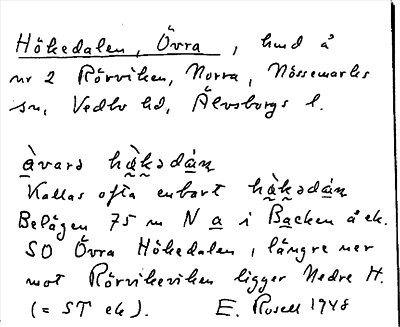 Hökedalen, Övra, hmd å
nr 2 Rörviken, Norra, Nössemarks
sn, Vedbo hd, Älvsborgs l.
àvarə hà̰k̰ədáṉ
Kallas ofta enbart hà̰k̰ədáṉ
Belägen 75 m N a̲ i Ba̲cken å ek.
SO Övra Hökedalen, längre ner
mot Rörvikeviken ligger Nedre H.
(= ST ek). E. Rosell 1948